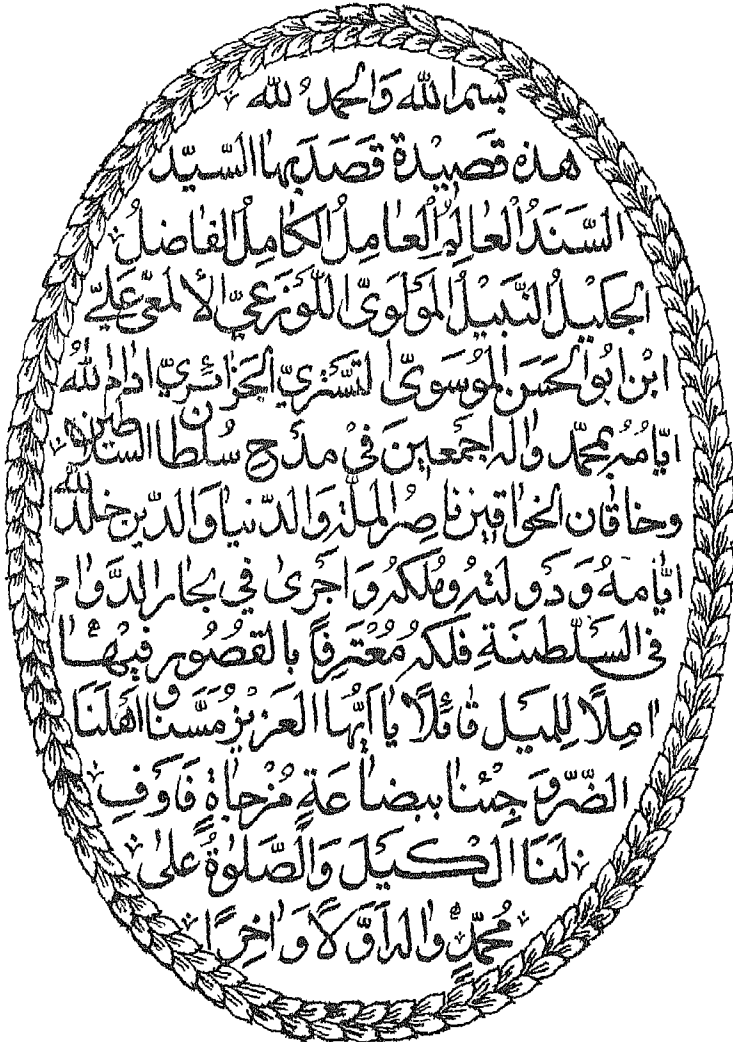 بسم الله وَالحمدُ لله
هذه قَصيْدة قَصَدَ بها السّيّد
السَّنَدُ الْعالِمُ الْعامِلُ الكامِلُ الفاضلُ
الجليْلُ النَّبيْلُ المَوْلَوىّ اللَّوْزَعىّ الألمعىّ عَلىّ
ابْن ابُو الحَسَن المُوْسَوىّ التسْتَرىّ الجَزائِرىّ ادام اللهُ
ايّامُهُ بمحمّد والهِ اجمَعيْنَ فىْ مدْحِ سُلطان السّلاطين
وخاقان الخواقين ناصِرُ الملّة وَالدّنيا وَالدّين خلد الله
ايّامهُ وَدَولتهُ وَمُلكهُ وَاَجْرىٰ في بحار الدَّوام
فى السَّلْطنَةِ فلكهُ مُعْتَرِفًا بالقُصُور فيْها
امِلًا لِلميْل قائِلًا يا اَيُّها العَزيْزُ مَسَّنا وَاهَلَنَا
الضّرُّ وَجِئْنا ببضاعَةٍ مُزْجاةٍ فَاَوْفِ
لَنَا الْكَيْلَ وَالصَّلوٰةُ عَلىٰ
مُحَمَّدٍ وَالهِ اَوَّلًا وَاٰخِرًا